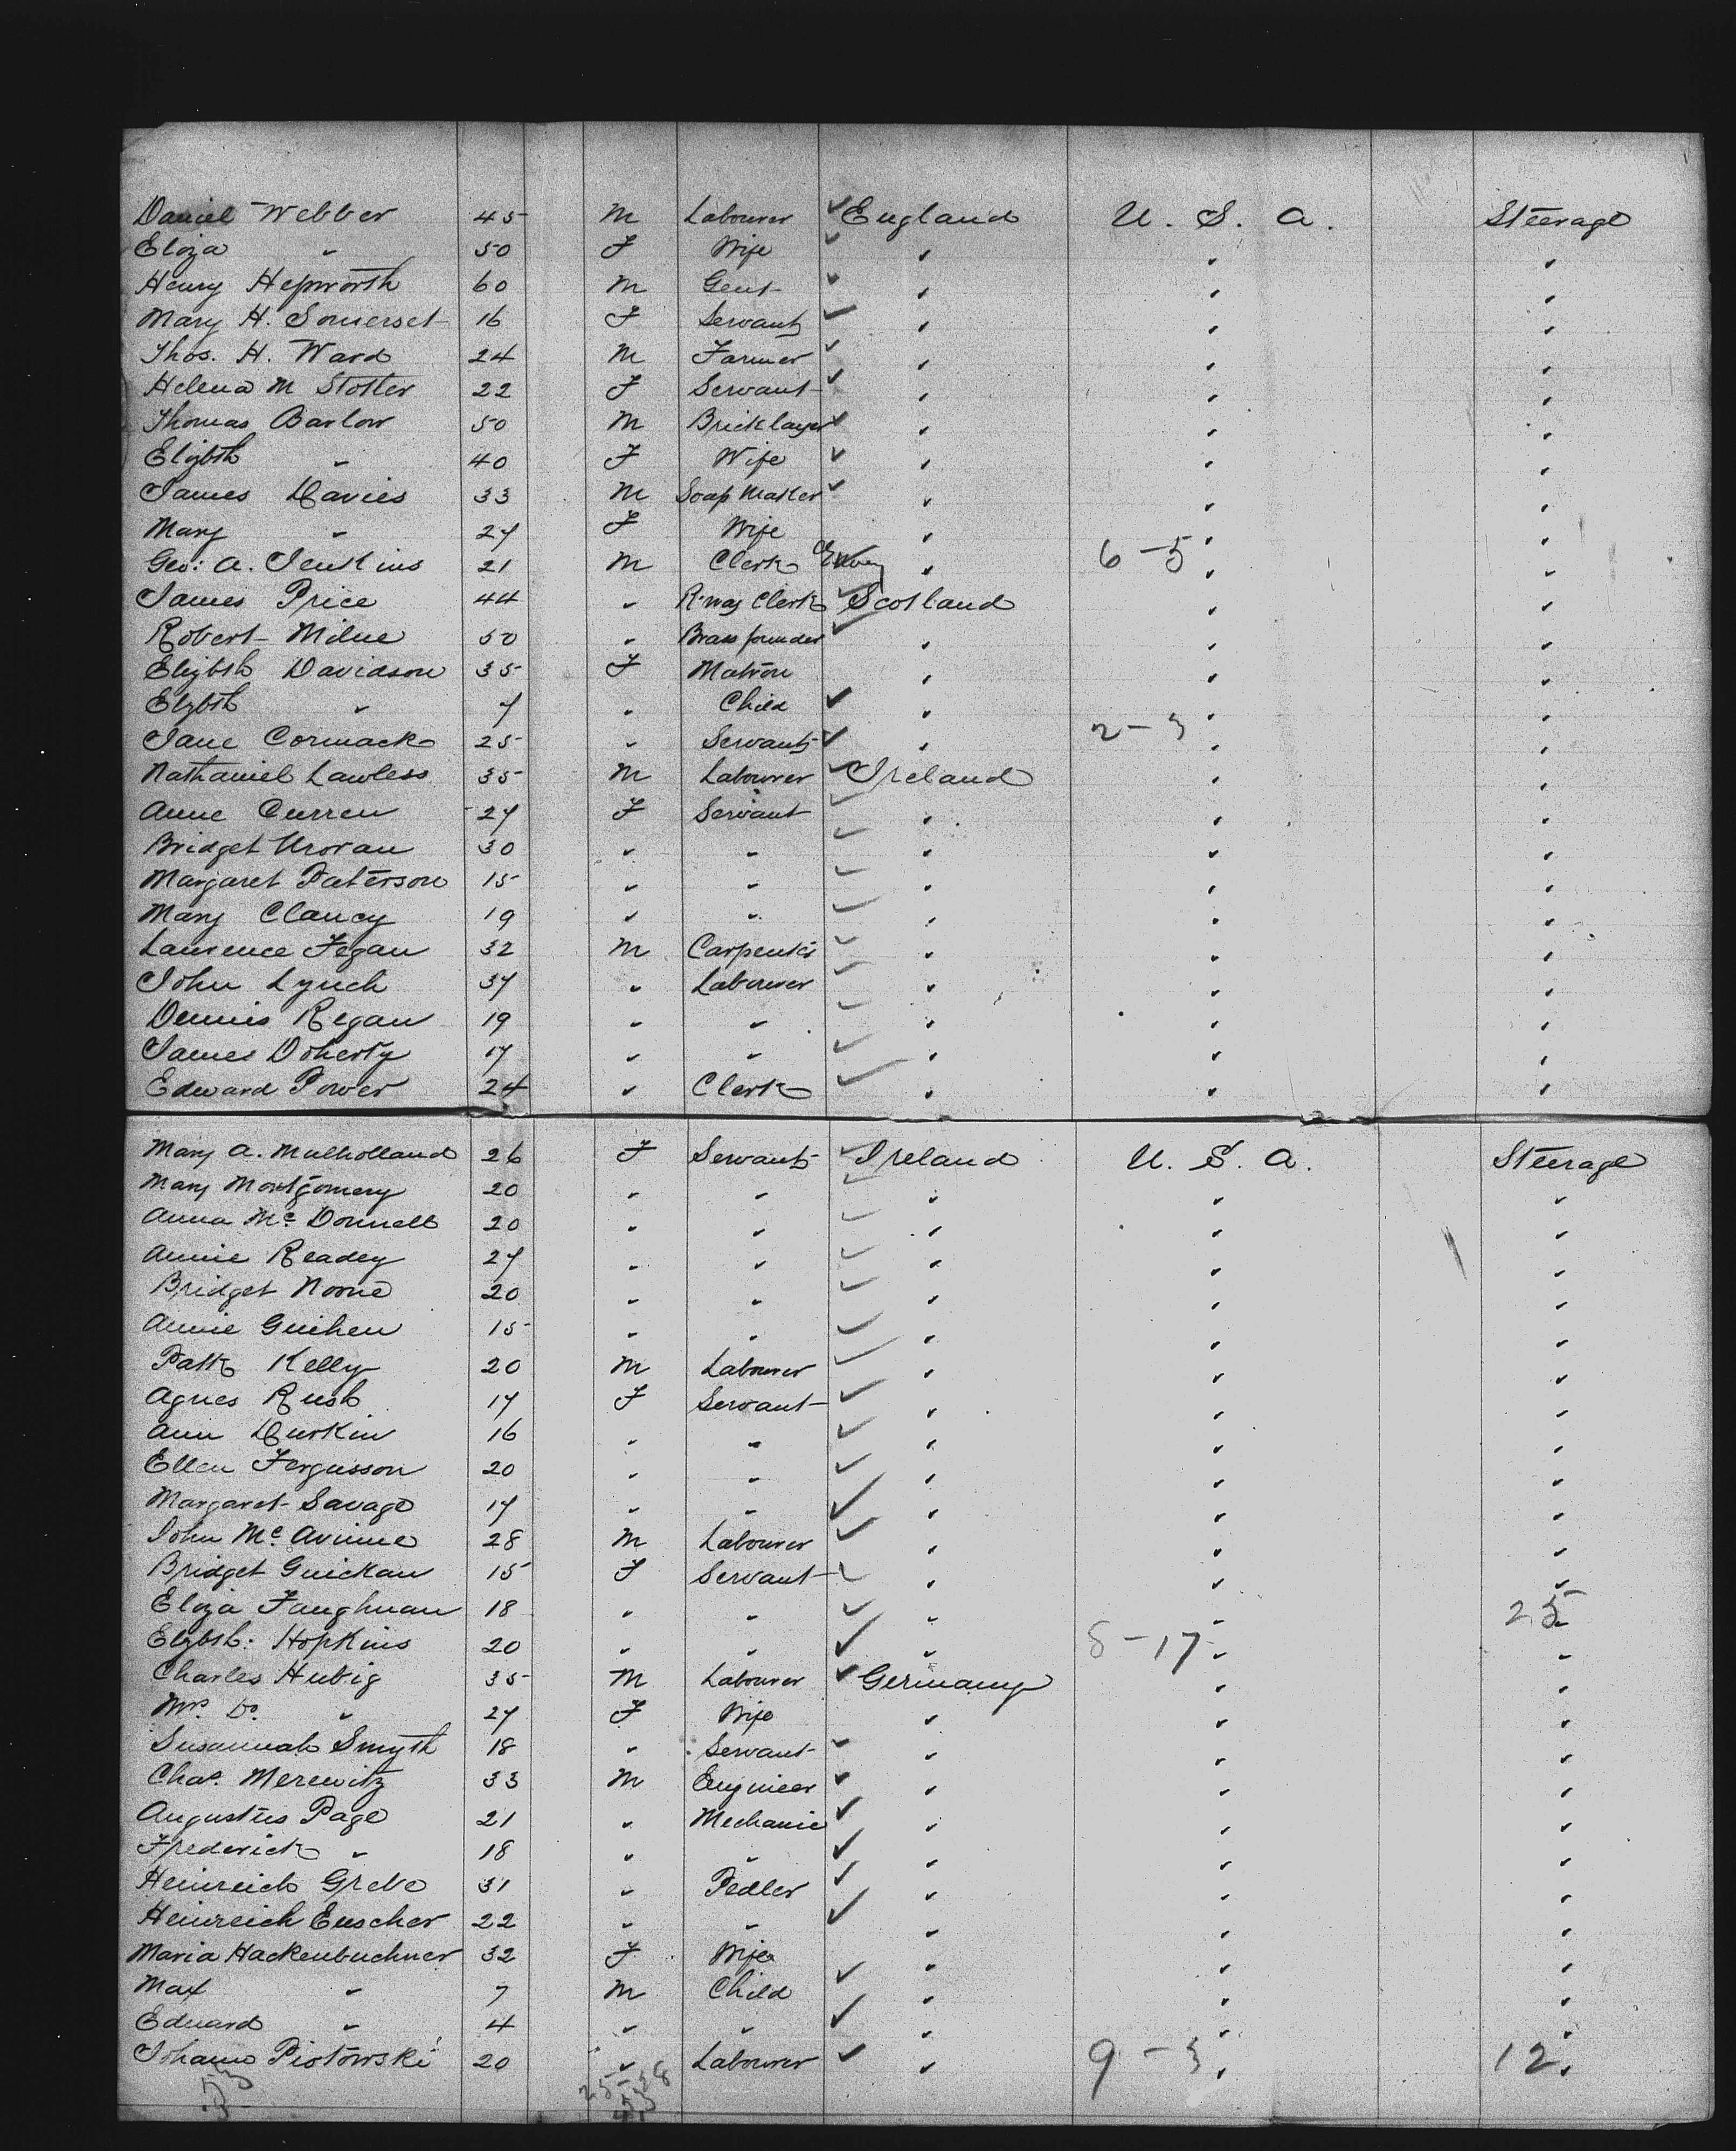 Daniel Webber 45 M Labourer England U. S. A. Steerage
Eliza " 50 F Wife " " "
Henry Hepworth 60 M Gent " " "
Mary H. Somerset 16 F Servant " " "
Thos. H. Ward 24 M Farmer " " "
Helena M Stotter 22 F Servant " " "
Thomas Barlow 50 M Bricklayer " " "
Elizbth " 40 F Wife " " "
James Davies 33 M Soap Maker " " "
Mary " 27 F Wife " " "
Geo: A. Jenkins 21 M Clerk " 6-5 " "
James Price 44 " R.way Clerk Scotland " "
Robert Milne 50 " Brass founder " " "
Elizbth Davidson 35 F Matron " " "
Elzbth " 7 " Child " " "
Jane Cormack 25 " Servant " 2-3 " "
Nathaniel Lawless 35 M Labourer Ireland " "
Anne Curren 27 F Servant " " "
Bridget 30 " " " " "
Margaret Paterson 15 " " " " "
Mary Clancy 19 " " " " "
Laurence Fegan 32 M Carpenter " " "
John Lynch 37 " Labourer " " "
Dennis Regan 19 " " " " "
James Doherty 17 " " " " "
Edward Power 24 " Clerk " " "
Mary A. Mulholland 26 F Servant Ireland U. S. A. Steerage
Mary Montgomery 20 " " " " "
Anna Mc Donnell 20 " " " " "
Annie Readey 27 " " " " "
Bridget Noone 20 " " " " "
Annie Guihen 15 " " " " "
Patk Kelly 20 M Labourer " " "
Agnes Rush 17 F Servant " " "
Ann Durkin 16 " " " " "
Ellen Fergusson 20 " " " " "
Margaret Savage 17 " " " " "
John Mc Avinue 28 M Labourer " " "
Bridget Guickan 15 F Servant " " "
Eliza Faughnan 18 " " " " 25 "
Elzbth: Hopkins 20 " " " 8-17 " "
Charles Hubig 35 M Labourer Germany " "
Mrs Do. " 27 F Wife " " "
Susannah Smyth 18 " Servant " " "
Chas. Merewitz 33 M Engineer " " "
Augustus Page 21 " Mechanic " " "
Frederick " 18 " " " " "
Heinreich Grebe 31 " Pedler " " "
Heinreich Euscher 22 " " " " "
Maria Hackenbuchner 32 F Wife " " "
Max " 7 M Child " " "
Eduard " 4 " " " " "
Johann Piotowski 20 " Labourer " 9-3 " 12 "